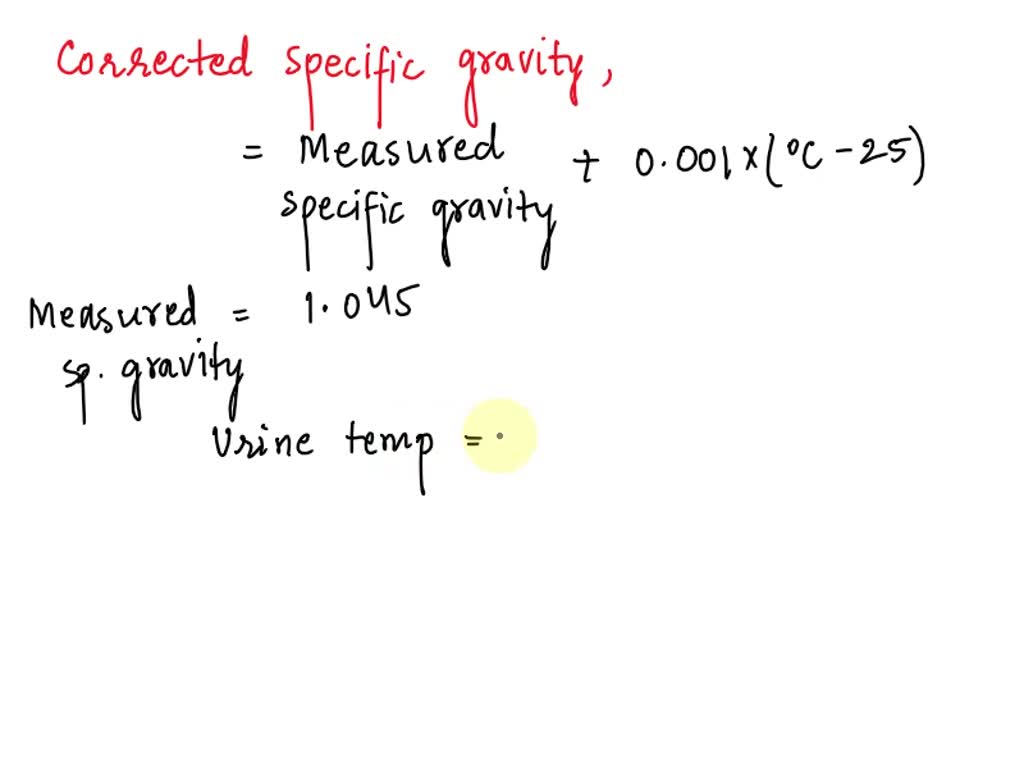 Corrected specific gravity,
= Measured specific gravity + 0.001 x (°C - 25)
Measured sp. gravity = 1.045
Urine temp =